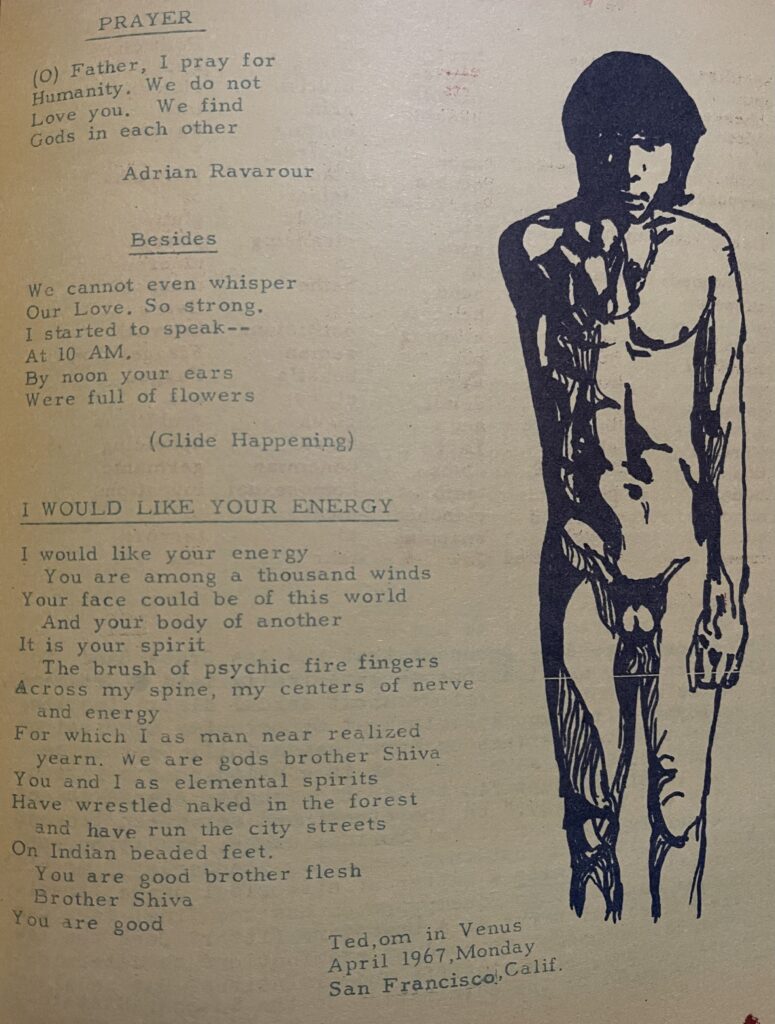 PRAYER
(O) Father, I pray for
Humanity. We do not
Love you. We find
Gods in each other
Adrian Ravarour
Besides
We cannot even whisper
Our Love. So strong.
I started to speak--
At 10 AM.
By noon your ears
Were full of flowers
(Glide Happening)
I WOULD LIKE YOUR ENERGY
I would like your energy
You are among a thousand winds
Your face could be of this world
And your body of another
It is your spirit
The brush of psychic fire fingers
Across my spine, my centers of nerve
and energy
For which I as man near realized
yearn. We are gods brother Shiva
You and I as elemental spirits
Have wrestled naked in the forest
and have run the city streets
On Indian beaded feet.
You are good brother flesh
Brother Shiva
You are good
Ted,om in Venus
April 1967,Monday
San Francisco,Calif.